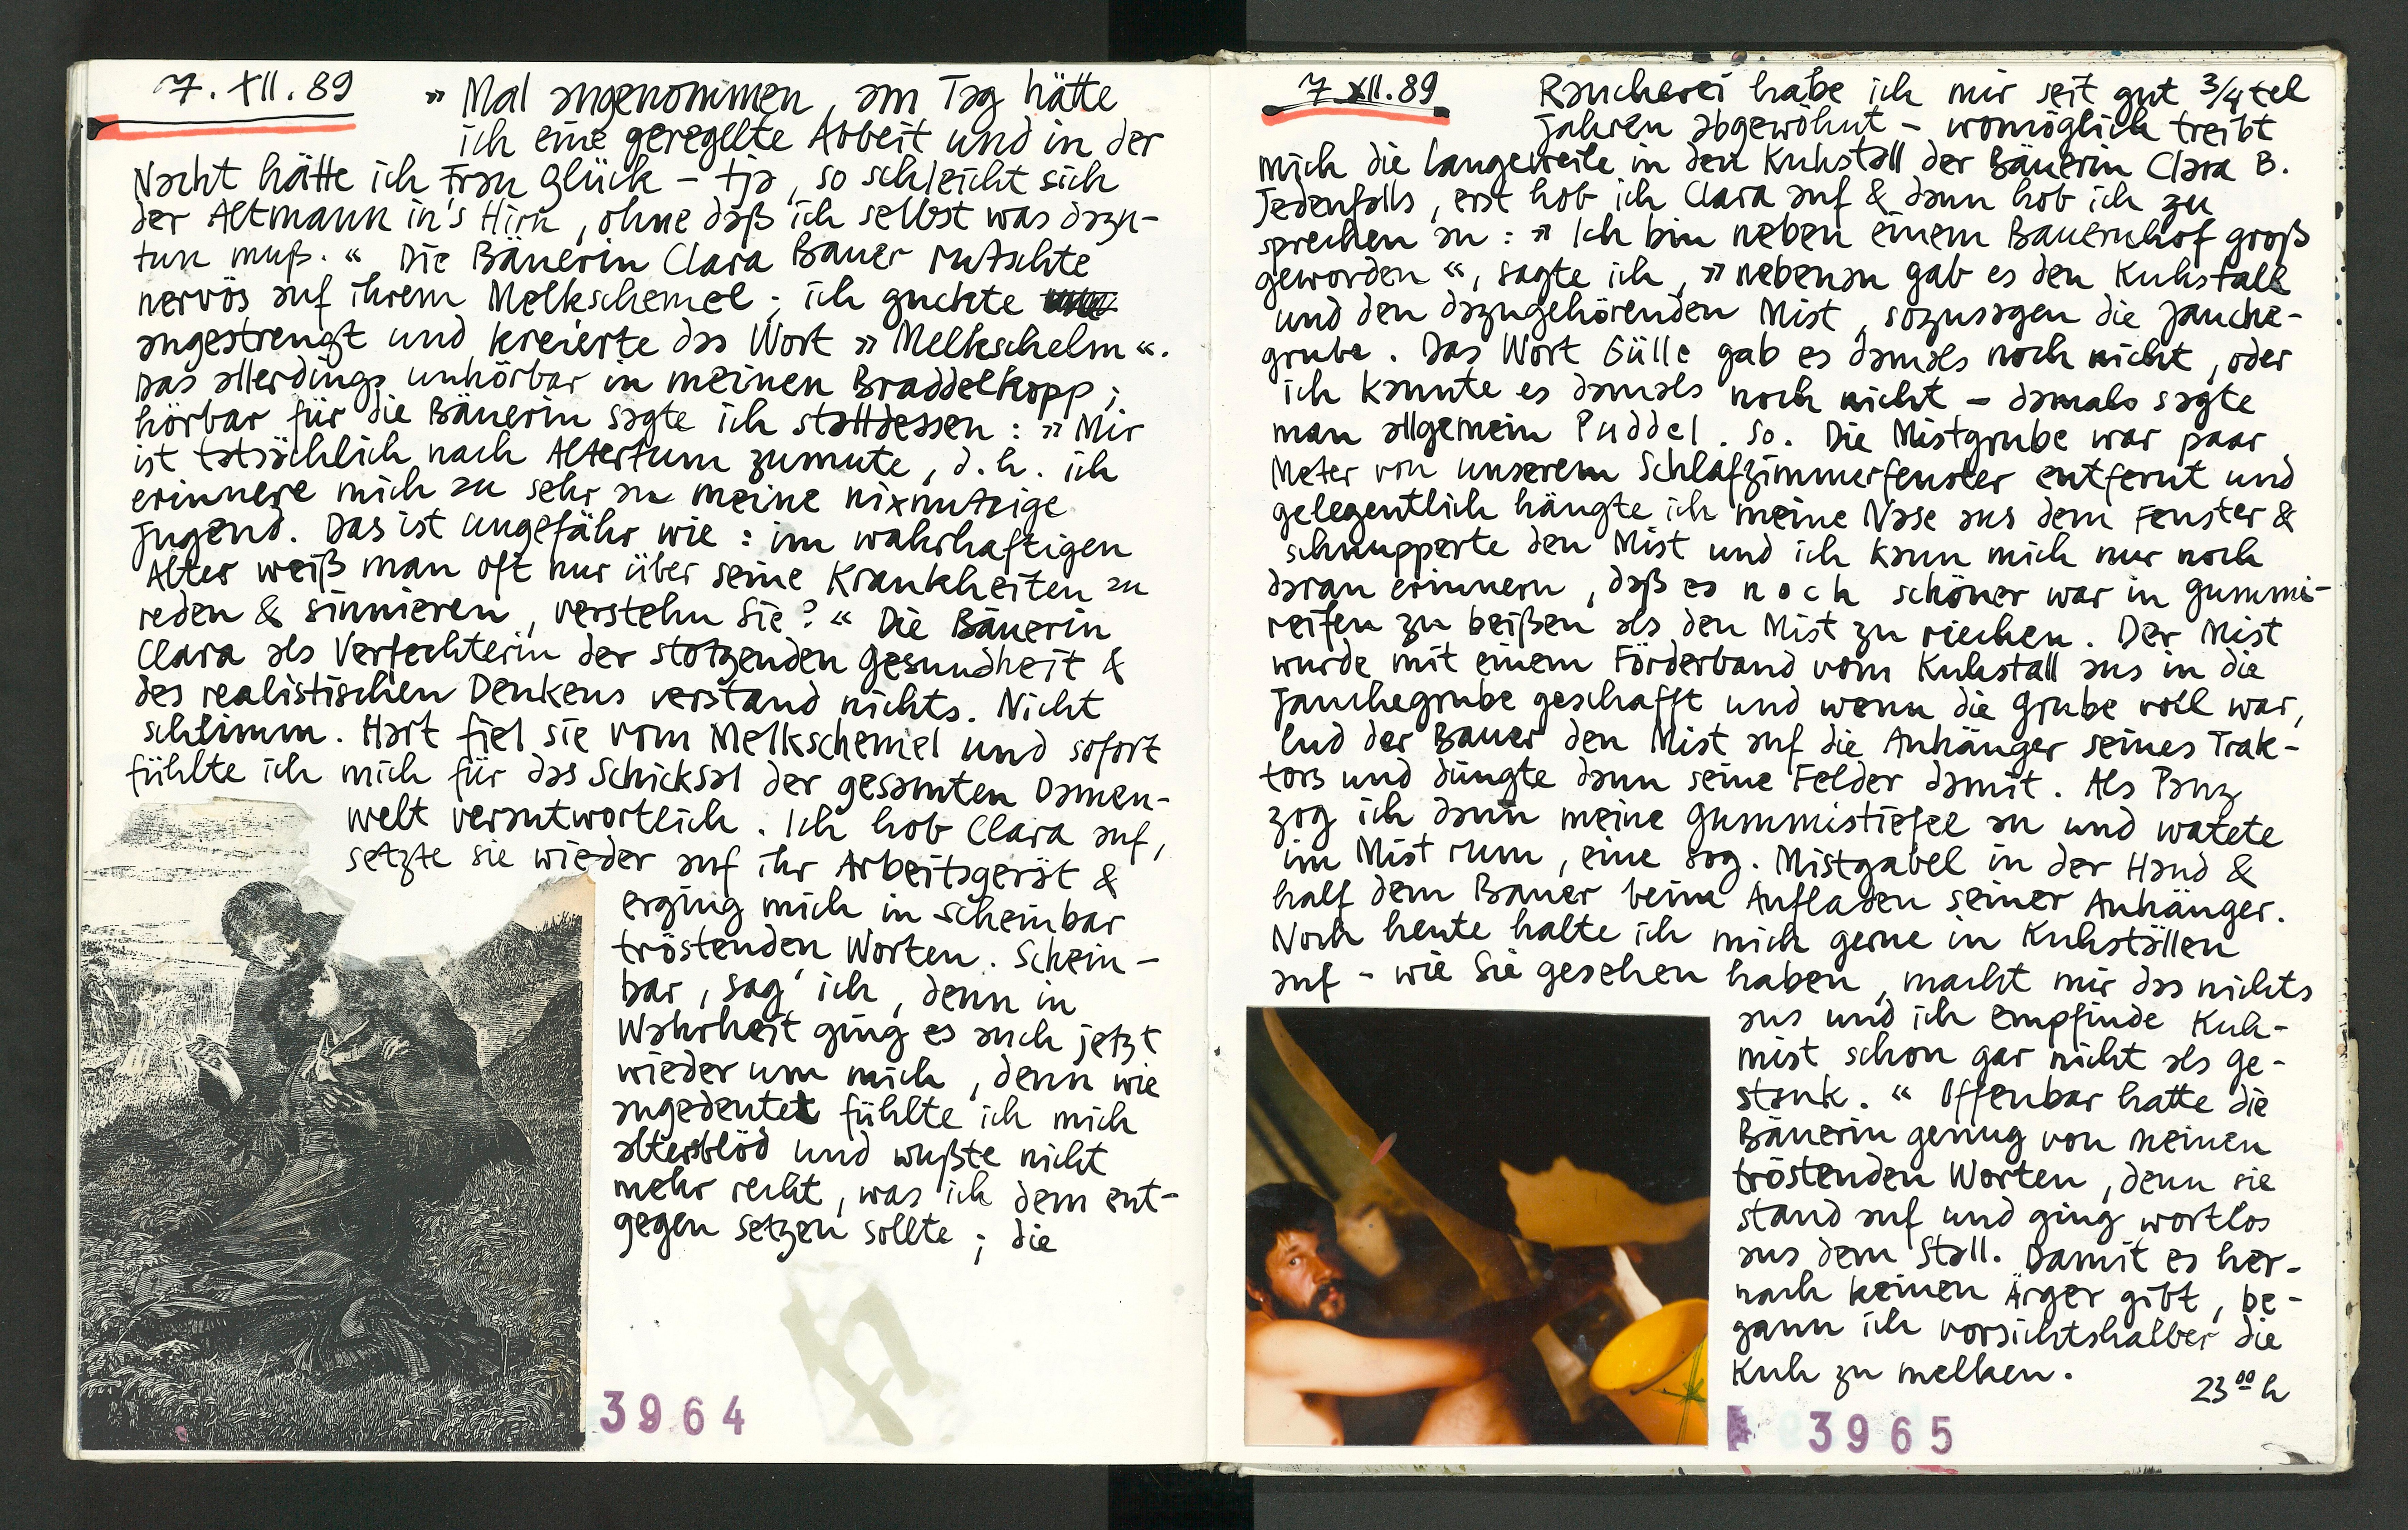 7. XII. 89
» Mal angenommen, am Tag hätte
ich eine geregelte Arbeit und in der
Nacht hätte ich Frau Glück – tja, so schleicht sich
der Altmann in's Hirn, ohne daß ich selbst was dazu-
tun muß. « Die Bäuerin Clara Bauer rutschte
nervös auf ihrem Melkschemel; ich guckte
angestrengt und kreierte das Wort » Melkschelm «.
Das allerdings unhörbar in meinen Braddelkopp;
hörbar für die Bäuerin sagte ich stattdessen: » Mir
ist tatsächlich nach Altertum zumute, d.h. ich
erinnere mich zu sehr an meine nixnutzige
Jugend. Das ist ungefähr wie: im wahrhaftigen
Alter weiß man oft nur über seine Krankheiten zu
reden & sinnieren, verstehn Sie? « Die Bäuerin
Clara als Verfechterin der stotzenden Gesundheit &
des realistischen Denkens verstand nichts. Nicht
schlimm. Hart fiel sie vom Melkschemel und sofort
fühlte ich mich für das Schicksal der gesamten Damen-
welt verantwortlich. Ich hob Clara auf,
setzte sie wieder auf ihr Arbeitsgerät &
erging mich in scheinbar
tröstenden Worten. Schein-
bar, sag' ich, denn in
Wahrheit ging es auch jetzt
wieder um mich, denn wie
angedeutet fühlte ich mich
altersblöd und wußte nicht
mehr recht, was ich dem ent-
gegen setzen sollte; die
3964
7. XII. 89
Raucherei habe ich mir seit gut 3/4tel
Jahren abgewöhnt – womöglich treibt
mich die Langeweile in den Kuhstall der Bäuerin Clara B.
Jedenfalls, erst hob ich Clara auf & dann hob ich zu
sprechen an: » Ich bin neben einem Bauernhof groß
geworden «, sagte ich, » nebenan gab es den Kuhstall
und den dazugehörenden Mist, sozusagen die Jauche-
grube. Das Wort Gülle gab es damals noch nicht, oder
ich kannte es damals noch nicht – damals sagte
man allgemein Puddel. So. Die Mistgrube war paar
Meter von unserem Schlafzimmerfenster entfernt und
gelegentlich hängte ich meine Nase aus dem Fenster &
schnupperte den Mist und ich kann mich nur noch
daran erinnern, daß es noch schöner war in Gummi-
reifen zu beißen als den Mist zu riechen. Der Mist
wurde mit einem Förderband vom Kuhstall aus in die
Jauchegrube geschafft und wenn die Grube voll war,
lud der Bauer den Mist auf die Anhänger seines Trak-
tors und düngte dann seine Felder damit. Als Panz
zog ich dann meine Gummistiefel an und watete
im Mist rum, eine sog. Mistgabel in der Hand &
half dem Bauer beim Aufladen seiner Anhänger.
Noch heute halte ich mich gerne in Kuhställen
auf – wie Sie gesehen haben, macht mir das nichts
aus und ich empfinde Kuh-
mist schon gar nicht als Ge-
stank. « Offenbar hatte die
Bäuerin genug von meinen
tröstenden Worten, denn sie
stand auf und ging wortlos
aus dem Stall. Damit es her-
nach keinen Ärger gibt, be-
gann ich vorsichtshalber die
Kuh zu melken.
23 00 h
3965